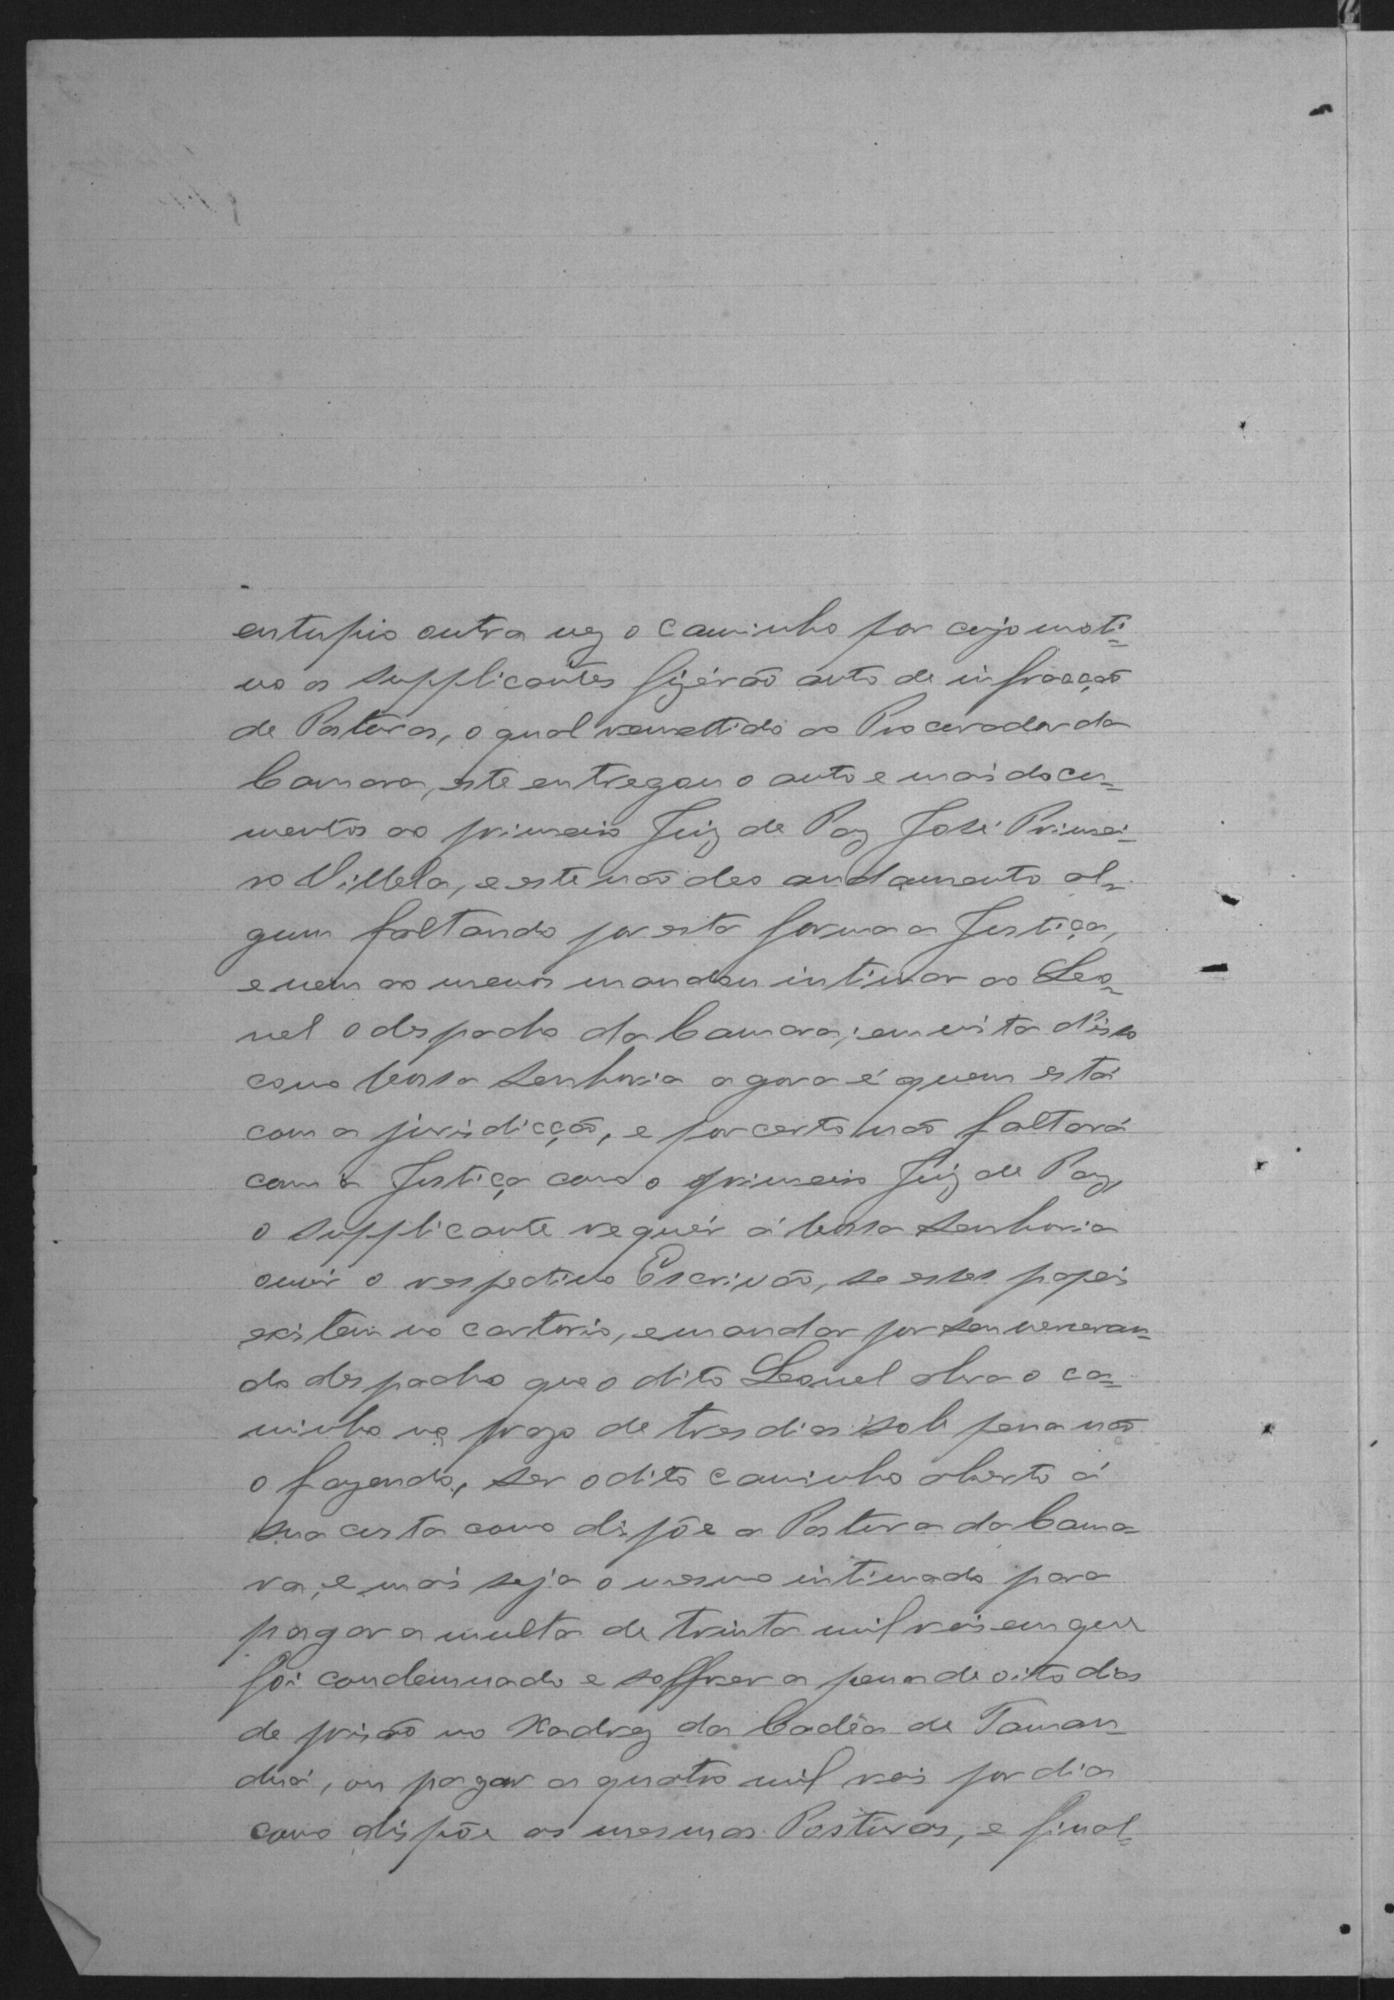 entupio outra vez o caminho por cujo moti=
vo os supplicantes fizérão auto de infracção
de Posturas, o qual remettido ao Procurador da
Camara, este entregou o auto e mais docu=
mentos ao primeiro Juiz de Paz José Primei=
ro Villela, e este não deo andamento al=
gum faltando por esta forma a Justiça,
e nem ao menos mandou intimar ao Leo=
nel o despacho da Camara; em vista d'isso
como Vossa Senhoria agora é quem está
com a jurisdicção, e por certo não faltará
com a Justiça como o primeiro Juiz de Paz,
o supplicante requér á Vossa Senhoria
ouvir o respectivo Escrivão, se estes papeis
existem no cartorio, e mandar por seu veneran=
do despacho que o dito Leonel abra o ca=
minho no prazo de tres dias sob pena não
o fazendo, ser o dito caminho aberto á
sua custa como dispõe a Postura da Cama=
ra, e mais seja o mesmo intimado para
pagar a multa de trinta mil reis em que
foi condemnado e soffrer a pena de oito dias
de prisão no Xadrez da Cadêa de Taman
duá, ou pagar a quatro mil reis por dia
como dispõe as mesmas Posturas, e final=